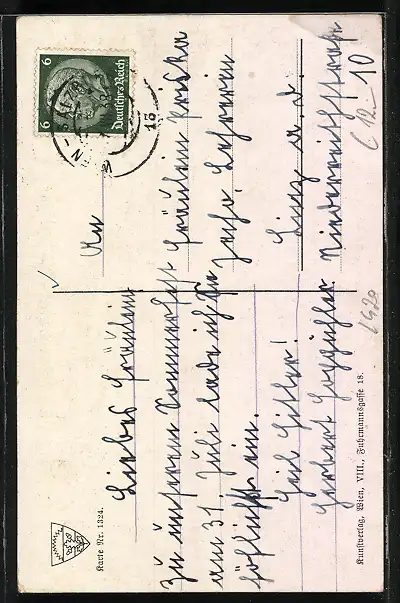 Karte Nr. 1324.
Liebes Fräulein
zu unserem Sommerfest
am 31. Juli lade ich Sie
höflichst ein.
Heil Hitler!
Herbert
Kunstverlag, Wien, VIII., Fuhrmannsgasse 18.
6 6
Deutsches Reich
WIEN
15
An
Fräulein
Lehrerin
Linz a. d.
Niederreithstraße
C 12.– 10